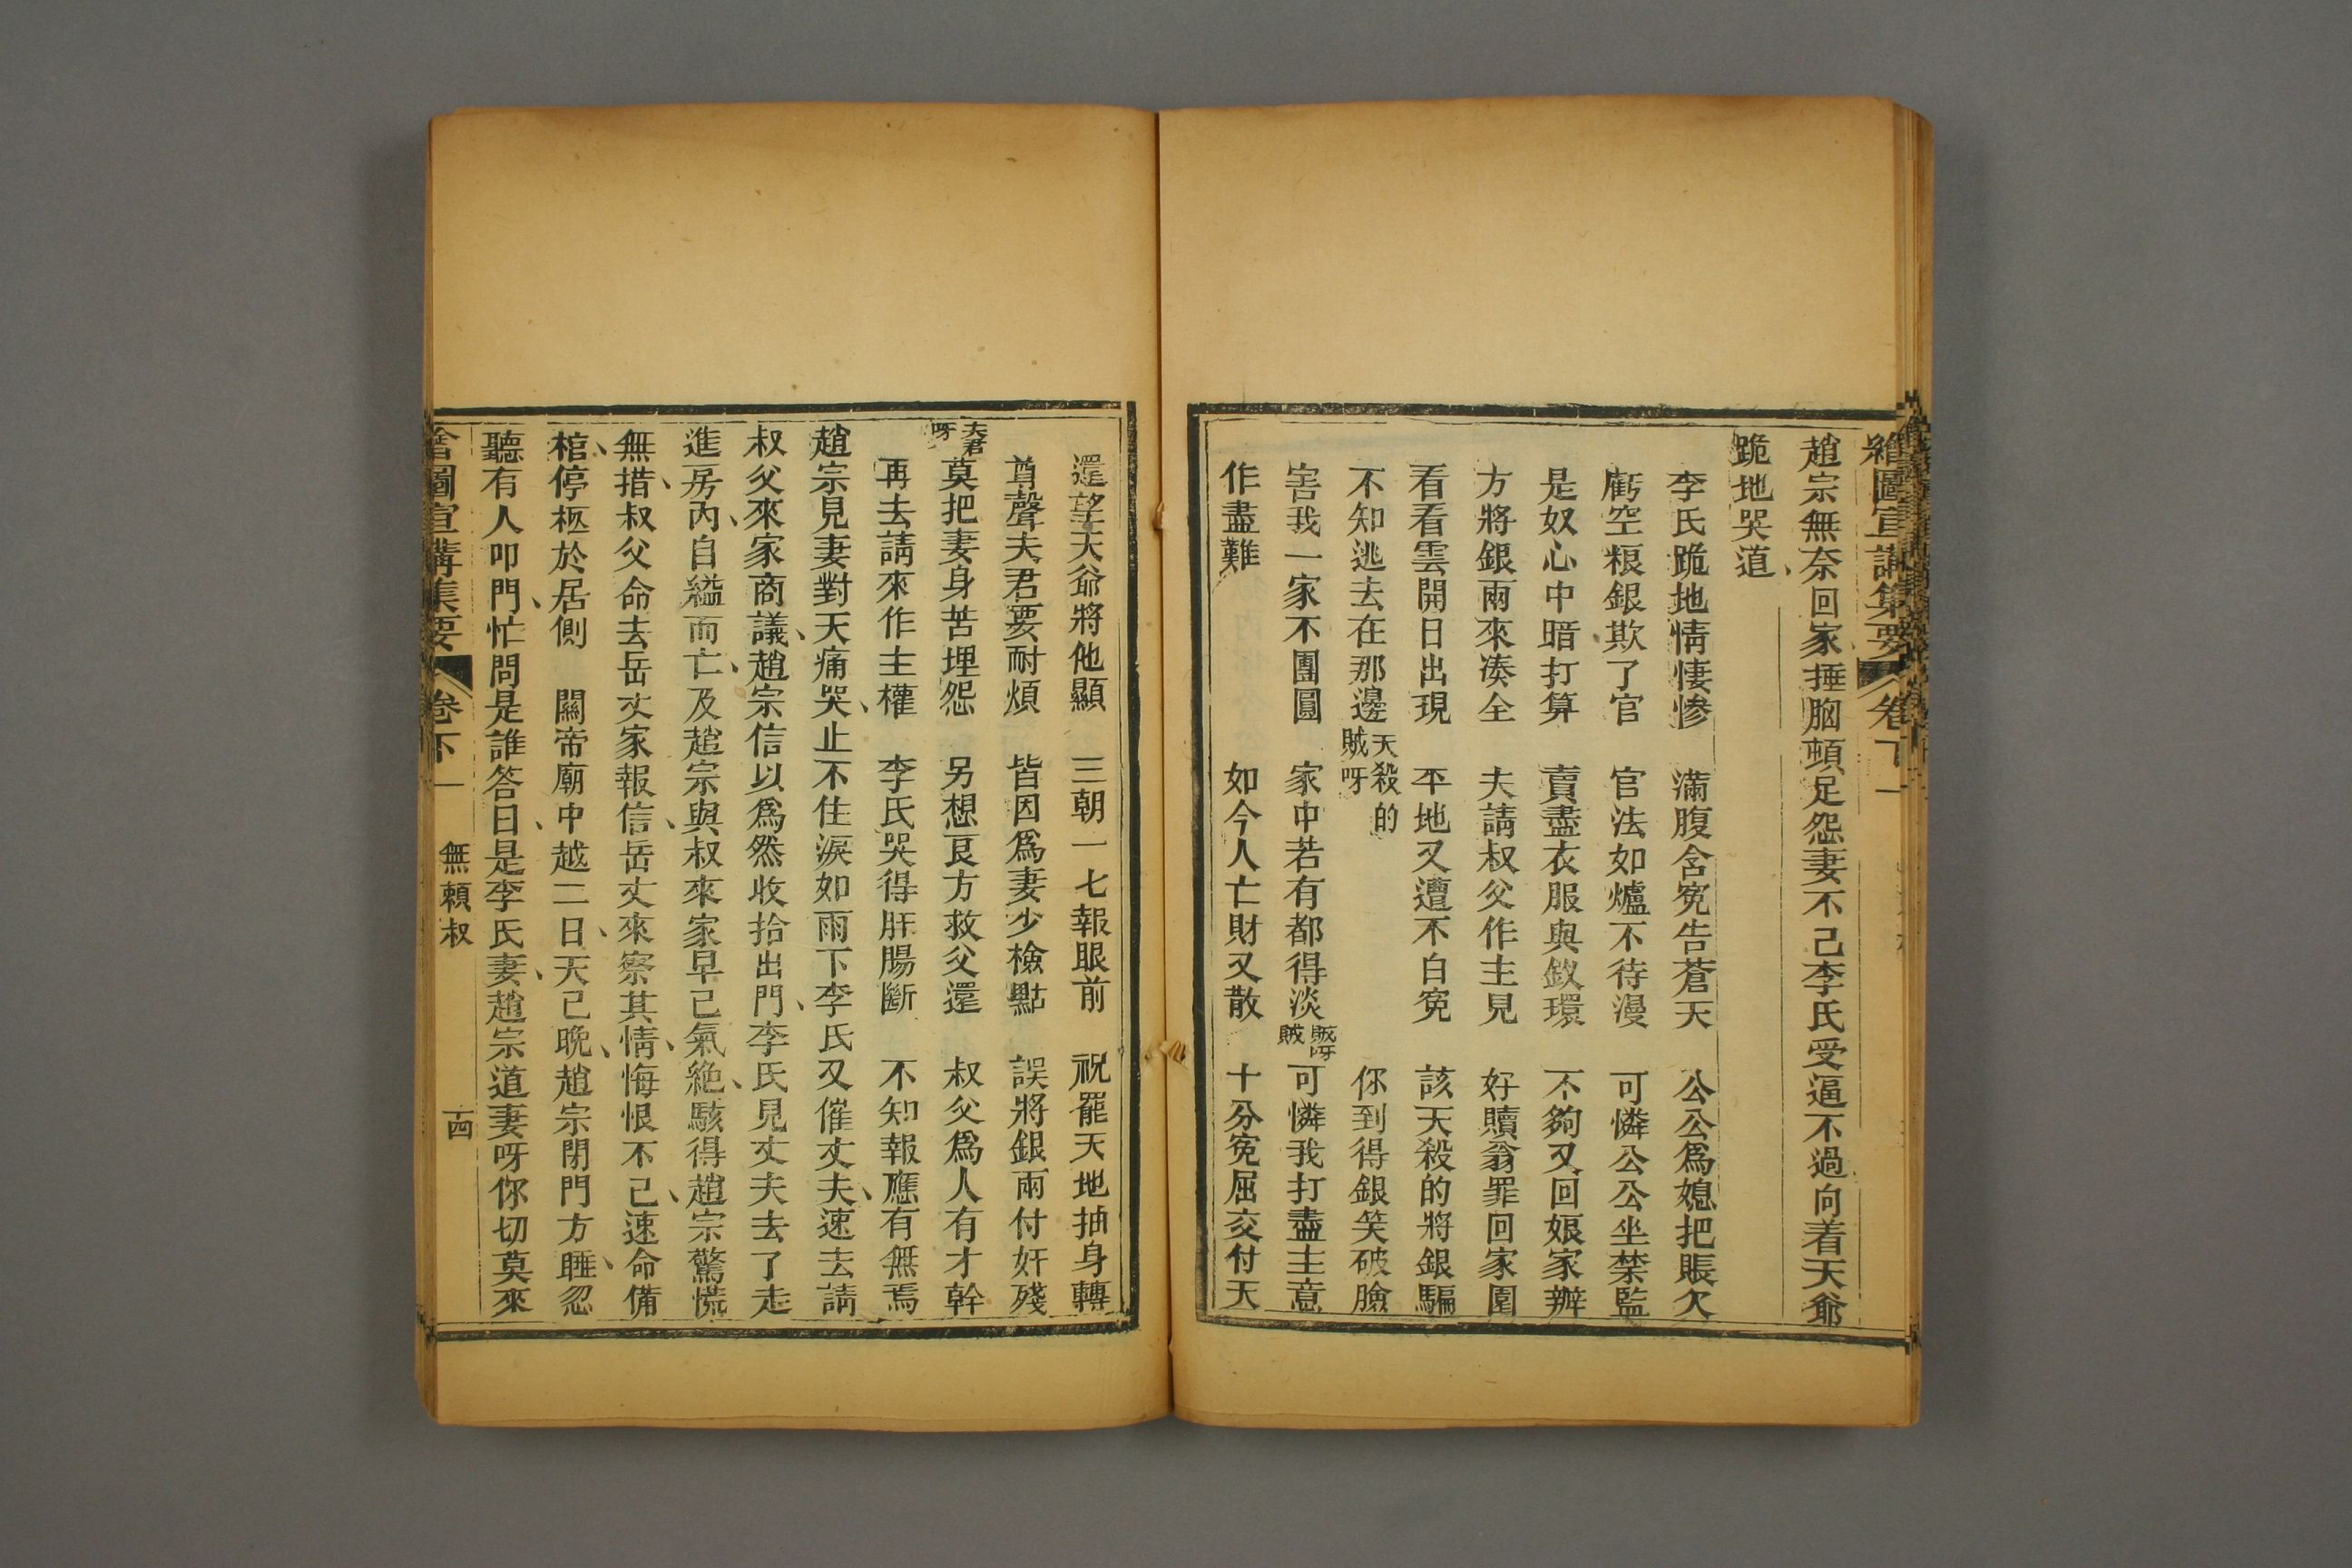 繪圖宣講集要 卷下一
趙宗無奈回家捶胸頓足怨妻不已李氏受逼不過向着天爺
跪地哭道
李氏跪地情悽慘 滿腹含寃告蒼天 公公爲媳把賬欠
虧空粮銀欺了官 官法如爐不待漫 可憐公公坐禁監
是奴心中暗打算 賣盡衣服與釵環 不夠又回娘家辦
方將銀兩來凑全 夫請叔父作主見 好贖翁罪回家園
看看雲開日出現 平地又遭不白寃 該天殺的將銀騙
不知逃去在那邊 天殺的賊呀 你到得銀笑破臉
害我一家不團圓 家中若有都得淡 賊呀賊 可憐我打盡主意
作盡難 如今人亡財又散 十分寃屈交付天
還望天爺將他顯 三朝一七報眼前 祝罷天地抽身轉
尊聲夫君要耐煩 皆因爲妻少檢點 誤將銀兩付奸殘
夫君呀 莫把妻身苦埋怨 另想良方救父還 叔父爲人有才幹
再去請來作主權 李氏哭得肝腸斷 不知報應有無焉
趙宗見妻對天痛哭、止不住淚如雨下李氏又催丈夫、速去請
叔父來家商議、趙宗信以爲然收拾出門、李氏見丈夫去了走
進房內、自縊而亡、及趙宗與叔來家早已氣絶、駭得趙宗驚慌
無措、叔父命去岳丈家報信、岳丈來察其情、悔恨不已、速命備
棺、停柩於居側 關帝廟中越二日、天已晚、趙宗閉門方睡、忽
聽有人叩門、忙問是誰答曰、是李氏妻、趙宗道妻呀你切莫來
繪圖宣講集要 卷下一 無賴叔 十四